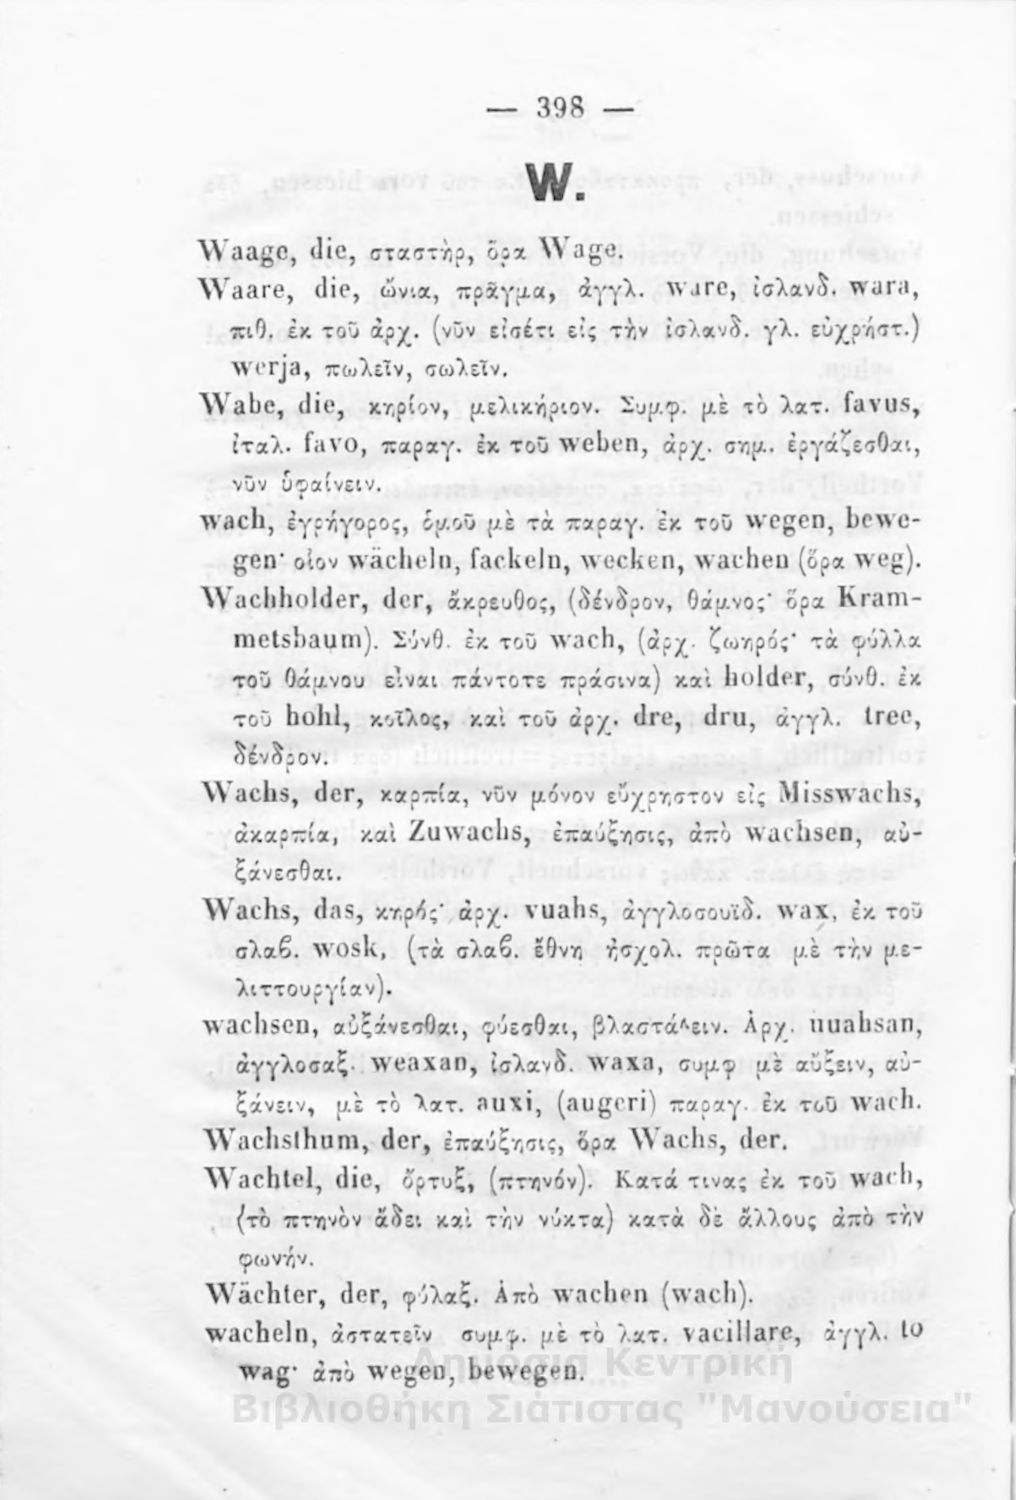 — 398 —
W.
Waage, die, σταστὴρ, ὅρα Wage.
Waare, die, ὤνια, πρᾶγμα, ἀγγλ. ware, ἰσλανδ. wara,
πιθ. ἐκ τοῦ ἀρχ. (νῦν εἰσέτι εἰς τὴν ἰσλανδ. γλ. εὐχρήστ.)
werja, πωλεῖν, σωλεῖν.
Wabe, die, κηρίον, μελικήριον. Συμφ. μὲ τὸ λατ. favus,
ἰταλ. favo, παραγ. ἐκ τοῦ weben, ἀρχ. σημ. ἐργάζεσθαι,
νῦν ὑφαίνειν.
wach, ἐγρήγορος, ὁμοῦ μὲ τὰ παραγ. ἐκ τοῦ wegen, bewe-
gen· οἷον wächeln, fackeln, wecken, wachen (ὅρα weg).
Wachholder, der, ἄκρευθος, (δένδρον, θάμνος· ὅρα Kram-
metsbaum). Σύνθ. ἐκ τοῦ wach, (ἀρχ. ζωηρός· τὰ φύλλα
τοῦ θάμνου εἶναι πάντοτε πράσινα) καὶ holder, σύνθ. ἐκ
τοῦ hohl, κοῖλος, καὶ τοῦ ἀρχ. dre, dru, ἀγγλ. tree,
δένδρον.
Wachs, der, καρπία, νῦν μόνον εὔχρηστον εἰς Misswachs,
ἀκαρπία, καὶ Zuwachs, ἐπαύξησις, ἀπὸ wachsen, αὐ-
ξάνεσθαι.
Wachs, das, κηρός· ἀρχ. vuahs, ἀγγλοσουϊδ. wax, ἐκ τοῦ
σλαβ. wosk, (τὰ σλαβ. ἔθνη ἠσχολ. πρῶτα μὲ τὴν με-
λιττουργίαν).
wachsen, αὐξάνεσθαι, φύεσθαι, βλαστάνειν. Ἀρχ. uuahsan,
ἀγγλοσαξ. weaxan, ἰσλανδ. waxa, συμφ μὲ αὔξειν, αὐ-
ξάνειν, μὲ τὸ λατ. auxi, (augeri) παραγ. ἐκ τοῦ wach.
Wachsthum, der, ἐπαύξησις, ὅρα Wachs, der.
Wachtel, die, ὄρτυξ, (πτηνόν). Κατά τινας ἐκ τοῦ wach,
(τὸ πτηνὸν ἄδει καὶ τὴν νύκτα) κατὰ δὲ ἄλλους ἀπὸ τὴν
φωνήν.
Wächter, der, φύλαξ. Ἀπὸ wachen (wach).
wacheln, ἀστατεῖν συμφ. μὲ τὸ λατ. vacillare, ἀγγλ. to
wag· ἀπὸ wegen, bewegen.
Δημόσια Κεντρική
Βιβλιοθήκη Σιάτιστας "Μανούσεια"